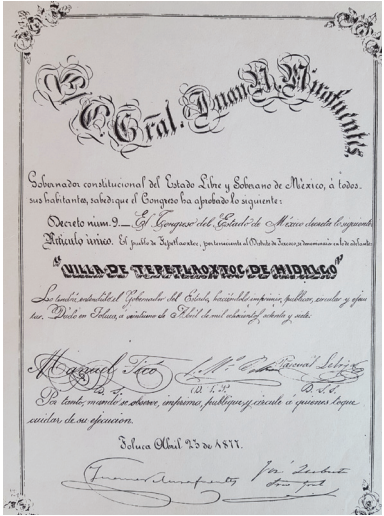 El C. Gral. Juan N. Mirafuentes,
Gobernador constitucional del Estado Libre y Soberano de México, á todos
sus habitantes, sabed: que el Congreso ha aprobado lo siguiente:
Decreto núm. 9._ El Congreso del Estado de México decreta lo siguiente:
Artículo único. El pueblo de Tepetlaoxtoc, perteneciente al Distrito de Texcoco, se denominará en lo de adelante:
"VILLA DE TEPETLAOXTOC DE HIDALGO"
Lo tendrá entendido el Gobernador del Estado, haciéndolo imprimir, publicar, circular y ejecu
tar. Dado en Toluca, á veintiuno de Abril de mil ochocientos setenta y siete.
Manuel Ticó
D. P.
D. S. S.
Por tanto, mando se observe, imprima, publique y circule á quienes toque
cuidar de su ejecución.
Toluca Abril 23 de 1877.
Juan N. Mirafuentes